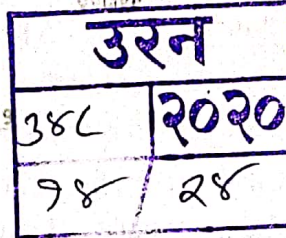 उरन
३४८ २०२०
१४ / २४